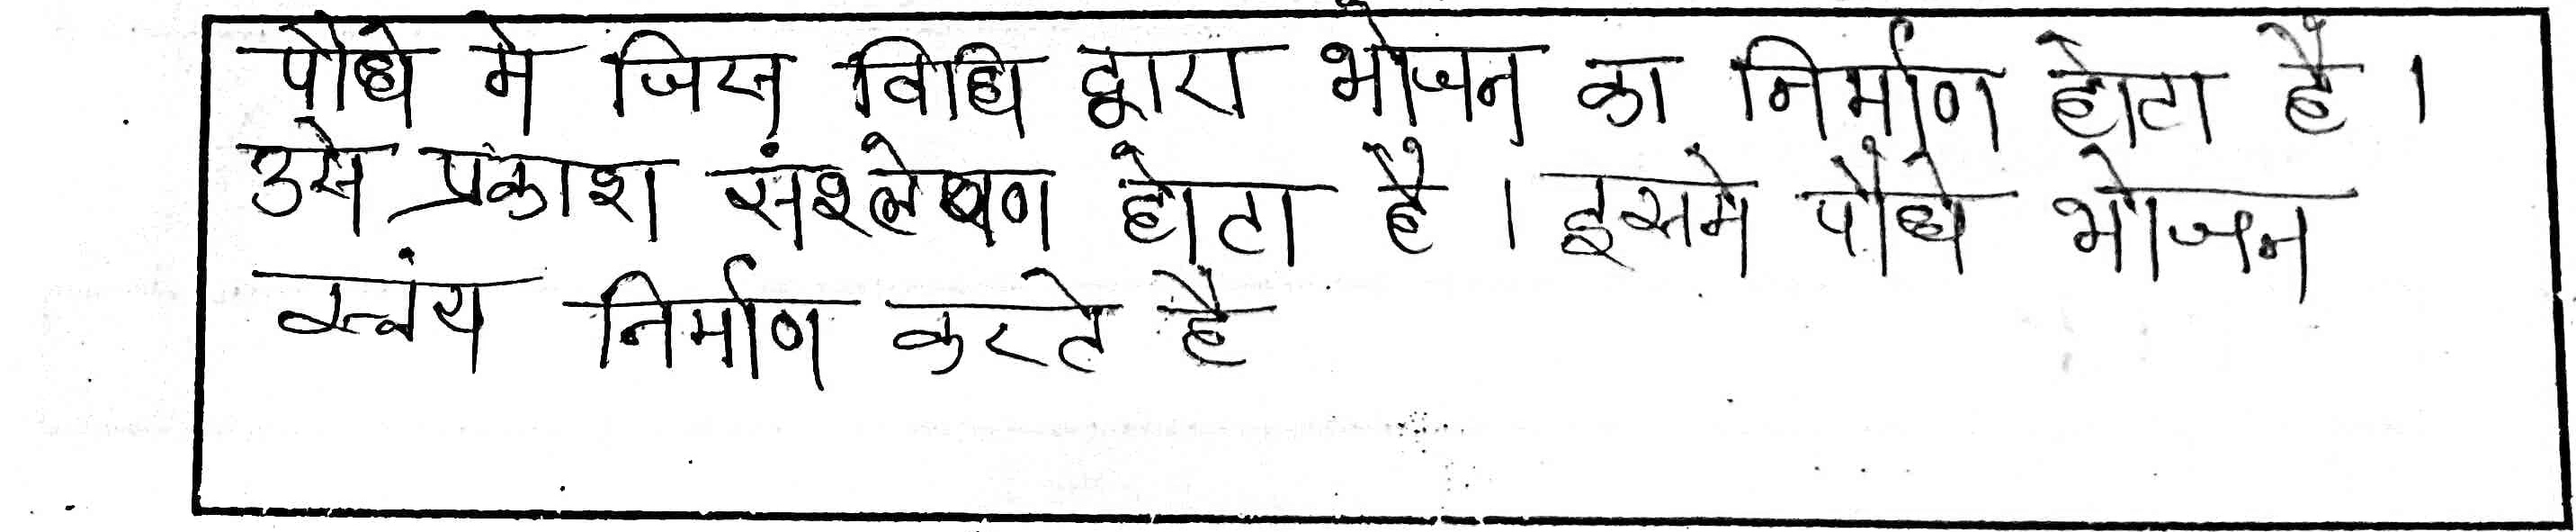 पौधे मे जिस विधि द्वारा भोजन का निर्माण होटा है ।
उसे प्रकाश संश्लेषण होटा है । इसमे पौधे भोजन
स्वंय निर्माण करते है